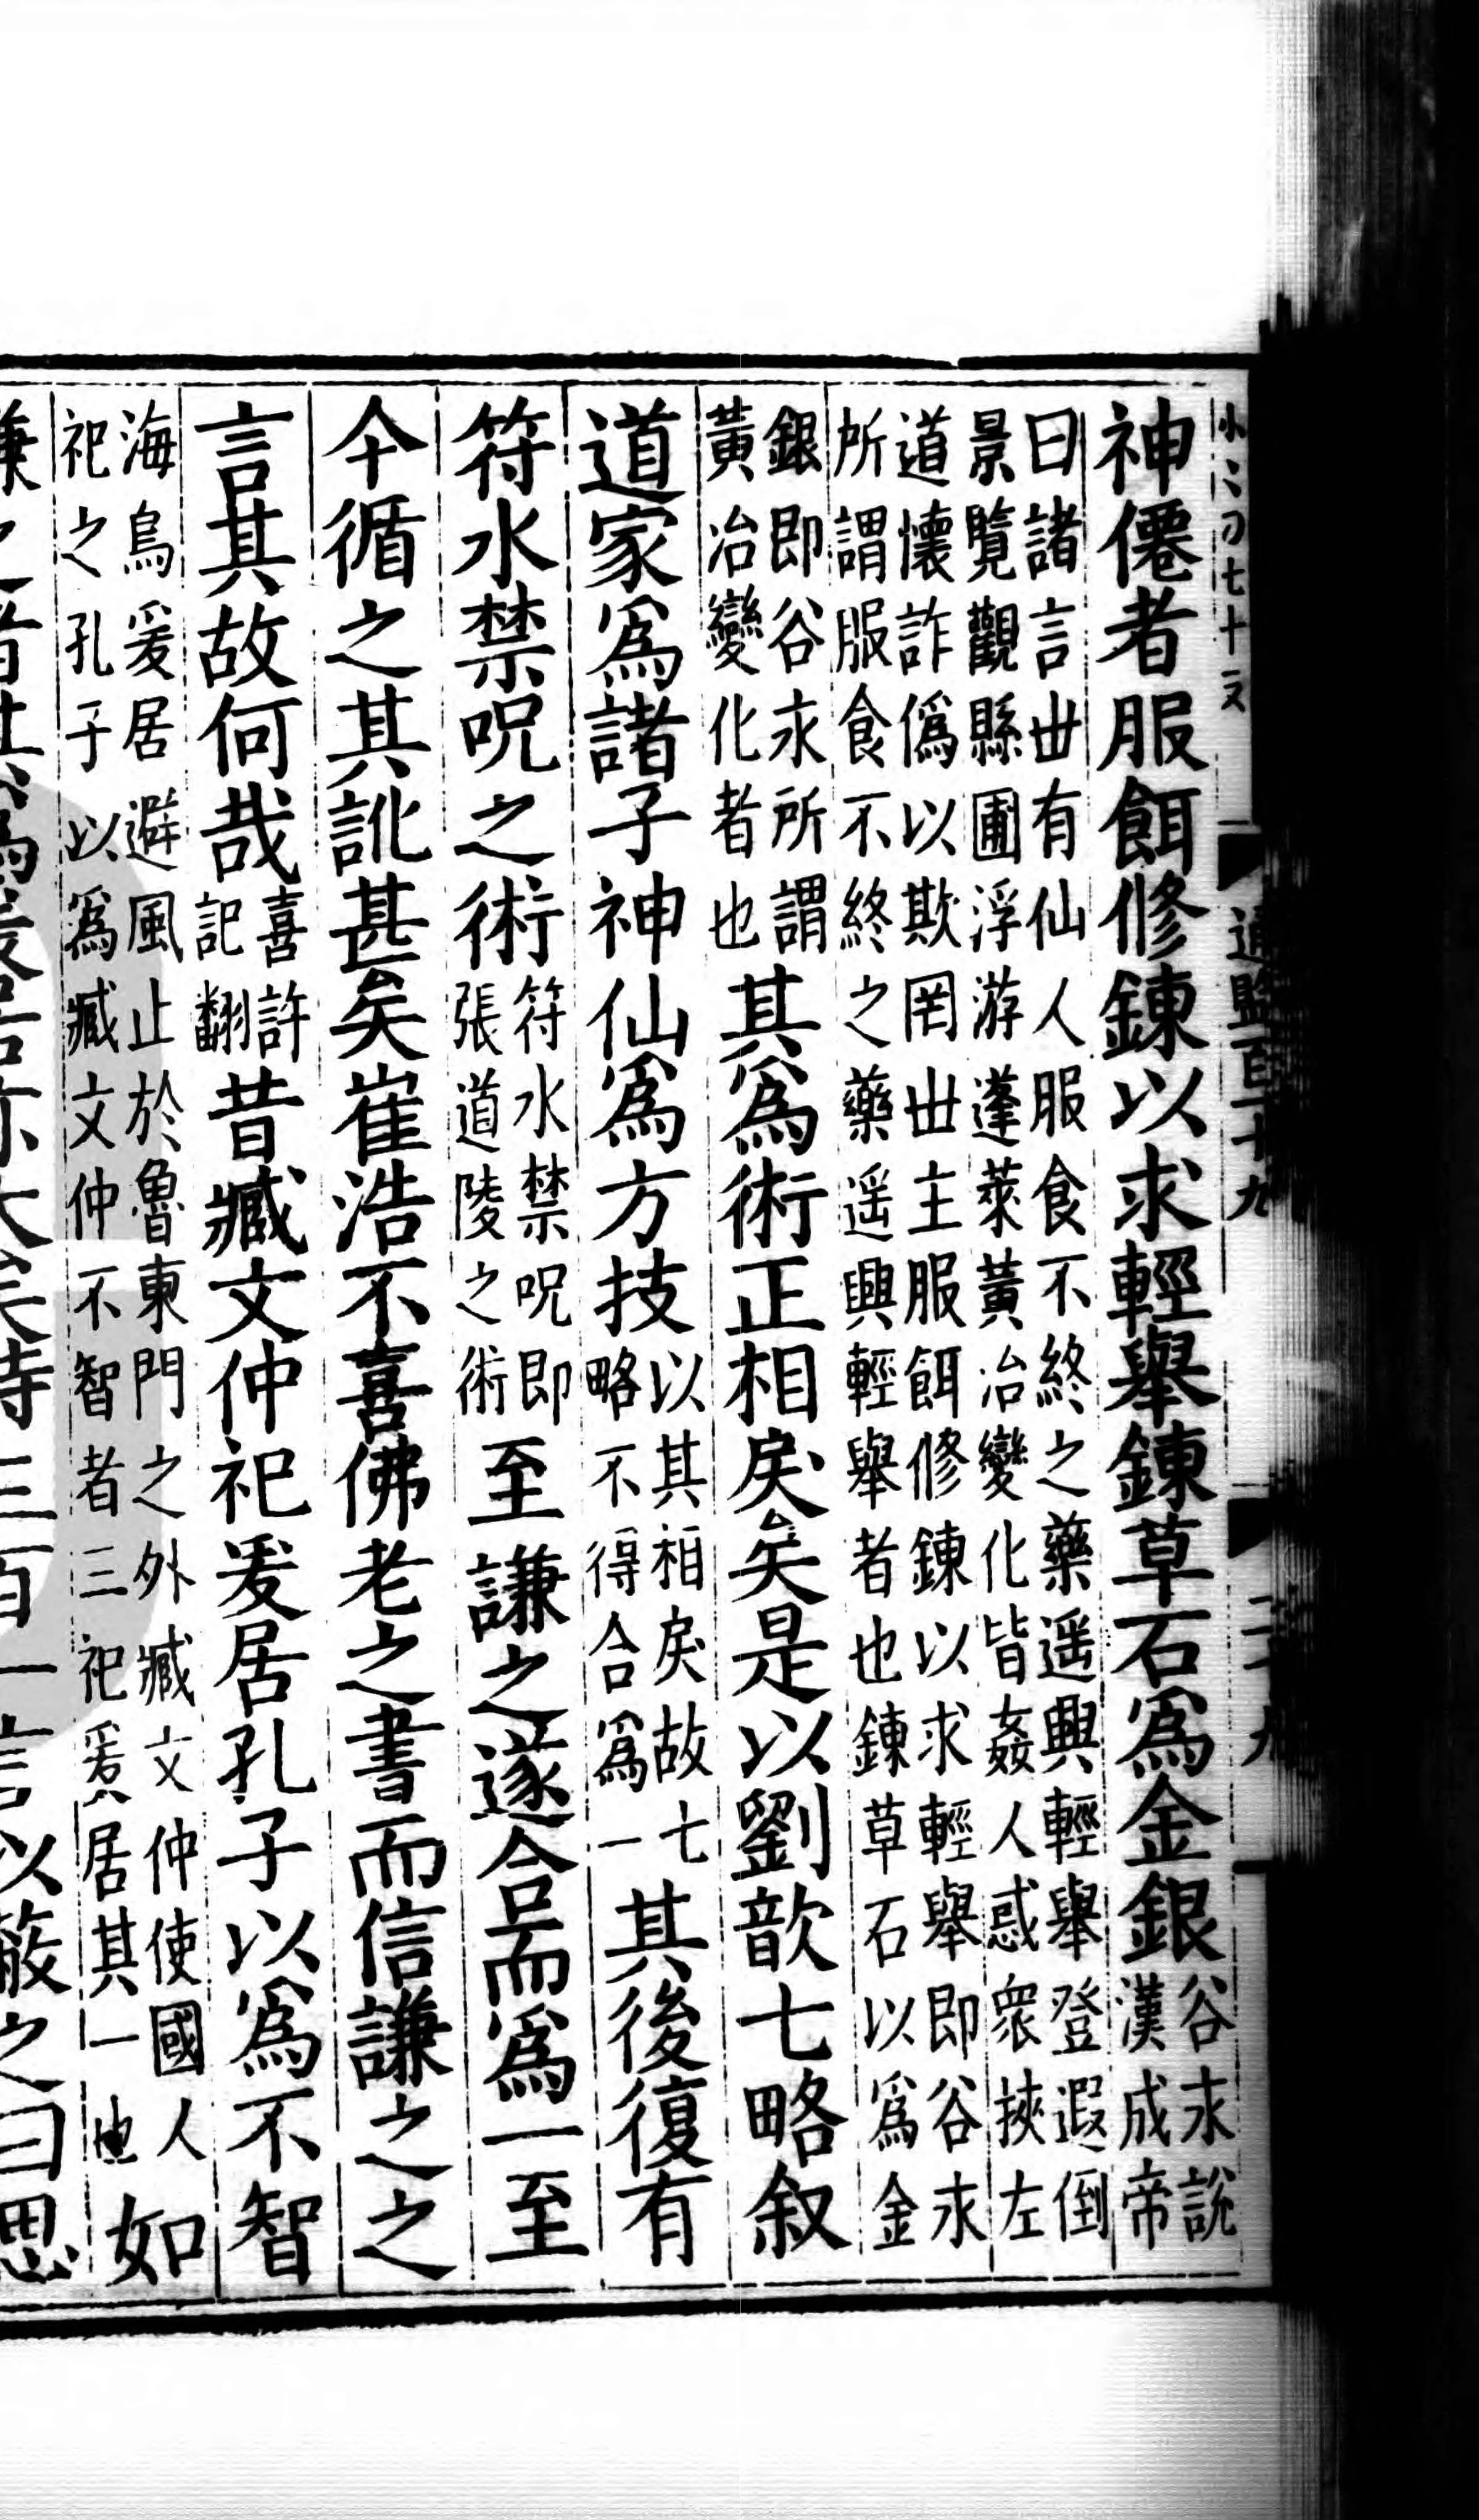 通鑑百十九
神僊者服餌修鍊以求輕舉鍊草石爲金銀谷永說漢成帝
曰諸言世有仙人服食不終之藥遥興輕舉登遐倒
景覽觀縣圃浮游蓬萊黃冶變化皆姦人惑衆挾左
道懷詐僞以欺罔世主服餌修鍊以求輕舉即谷永
所謂服食不終之藥遥興輕舉者也鍊草石以爲金
銀即谷永所謂
黃冶變化者也其爲術正相戾矣是以劉歆七略叙
道家爲諸子神仙爲方技以其相戾故七略不得合爲一其後復有
符水禁呪之術符水禁呪即張道陵之術至謙之遂合而爲一至
今循之其訛甚矣崔浩不喜佛老之書而信謙之之
言其故何哉喜許記翻昔臧文仲祀爰居孔子以爲不智
海鳥爰居避風止於魯東門之外臧文仲使國人
祀之孔子以爲臧文仲不智者三祀爰居其一也如